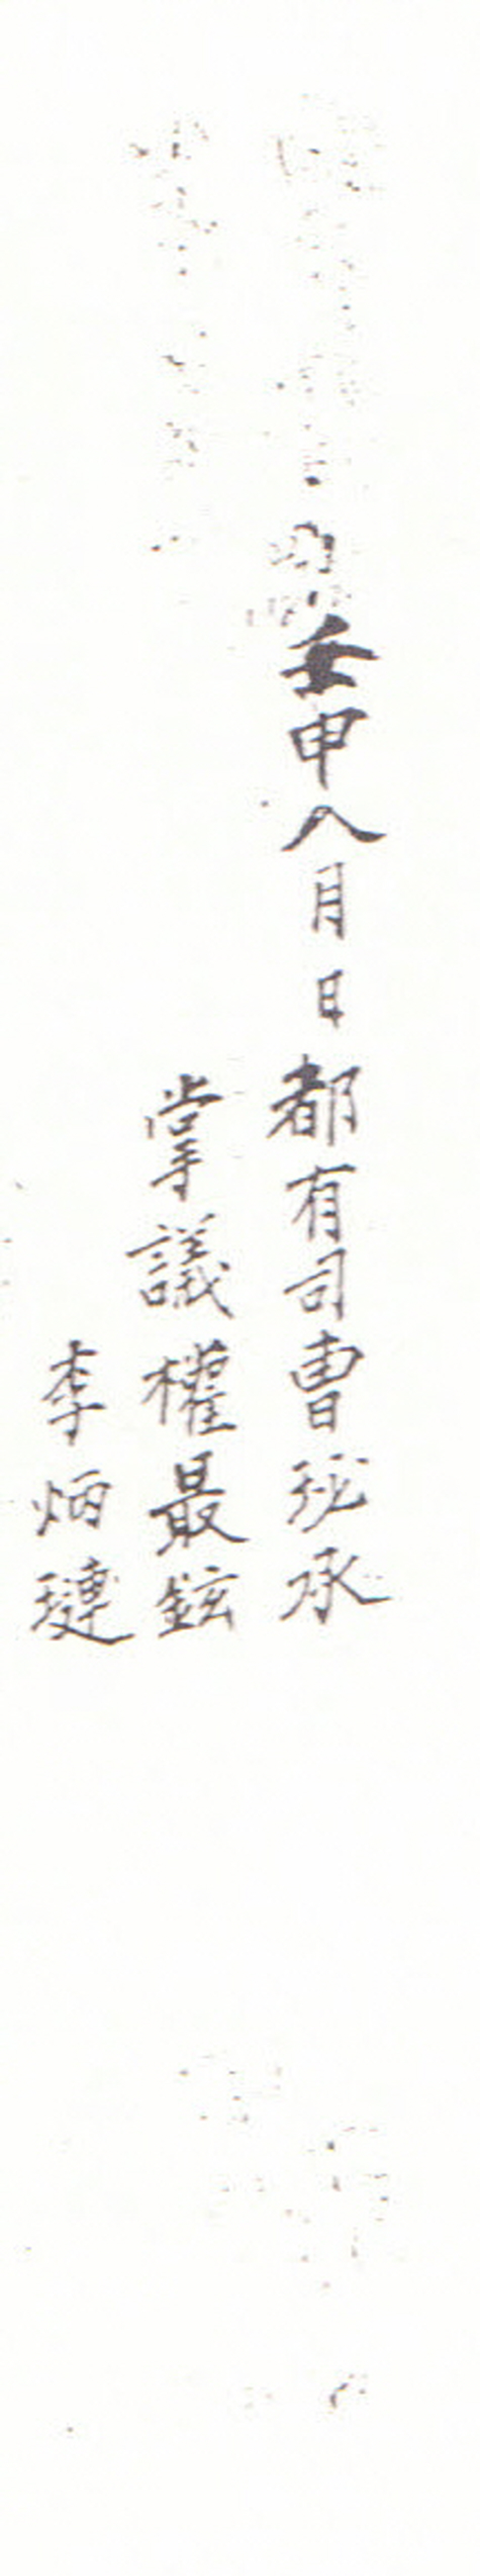 壬申八月日都有司曺珌承
掌議權最鉉
李炳璉